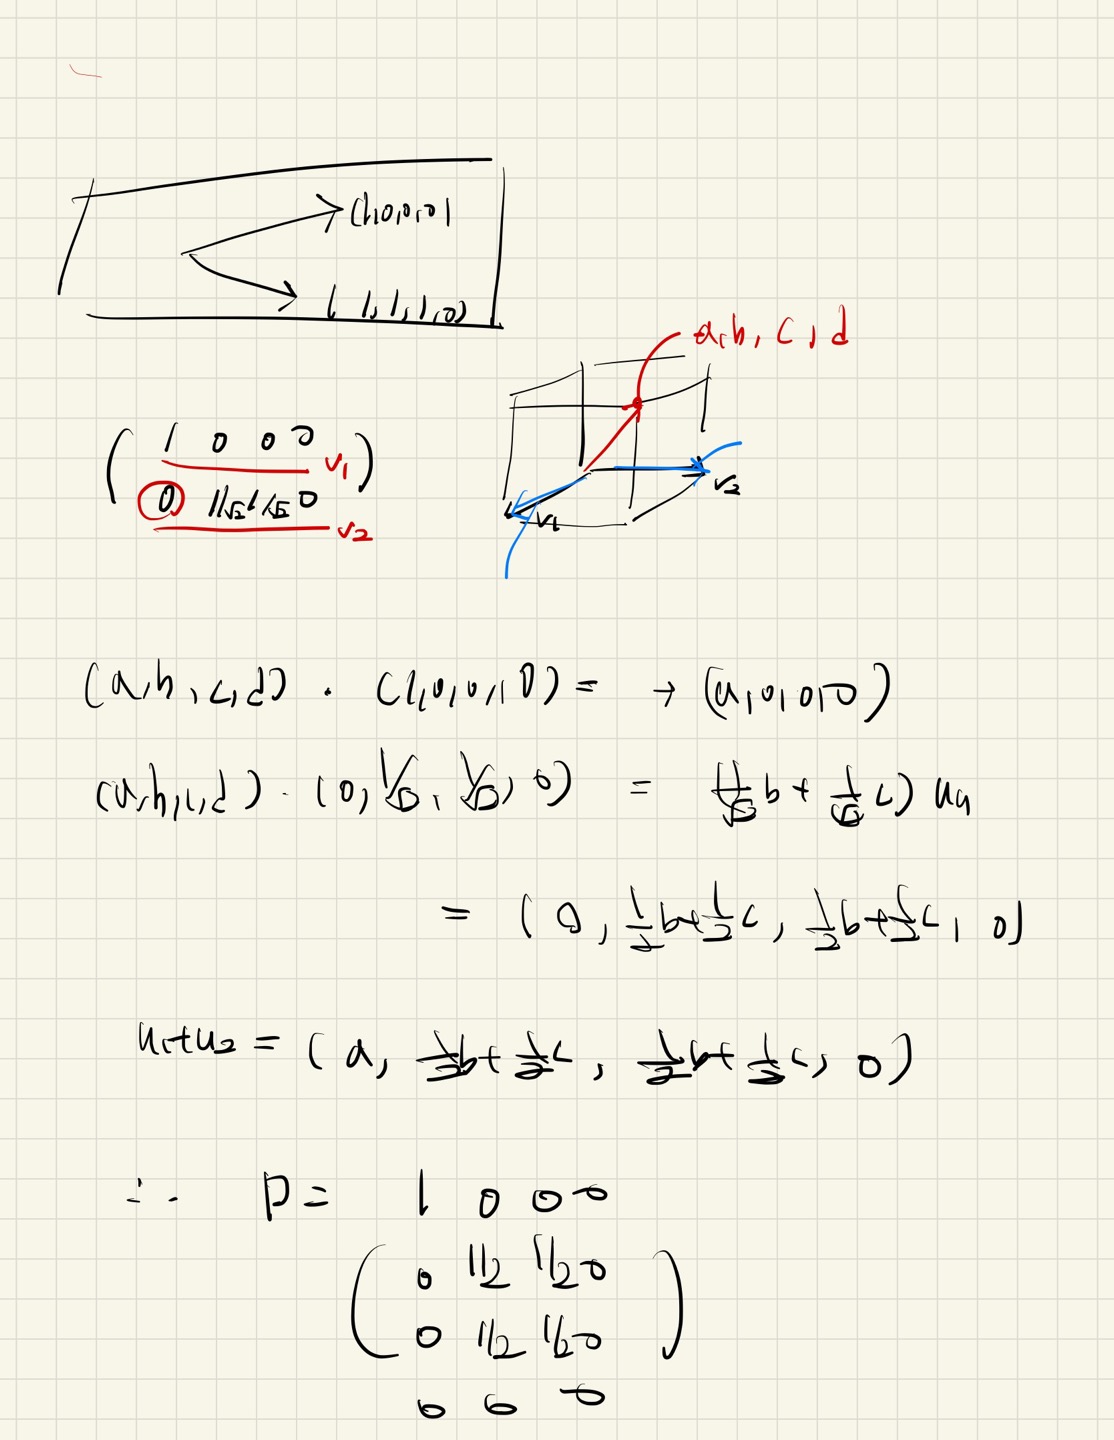 (1,0,0,0)
( 1, 1, 1, 0)
a, b, c, d
1 0 0 0 v₁
0 1/√2 1/√2 0 v₂
v₂
v₁
(a, b, c, d) · (1, 0, 0, 0) = → (a, 0, 0, 0)
(a, b, c, d) · (0, 1/√2, 1/√2, 0) = (1/√2 b + 1/√2 c)
= (0, 1/2 b + 1/2 c, 1/2 b + 1/2 c, 0)
u₁+u₂ = (a, 1/2 b + 1/2 c, 1/2 b + 1/2 c, 0)
∴ P = 1 0 0 0
0 1/2 1/2 0
0 1/2 1/2 0
0 0 0